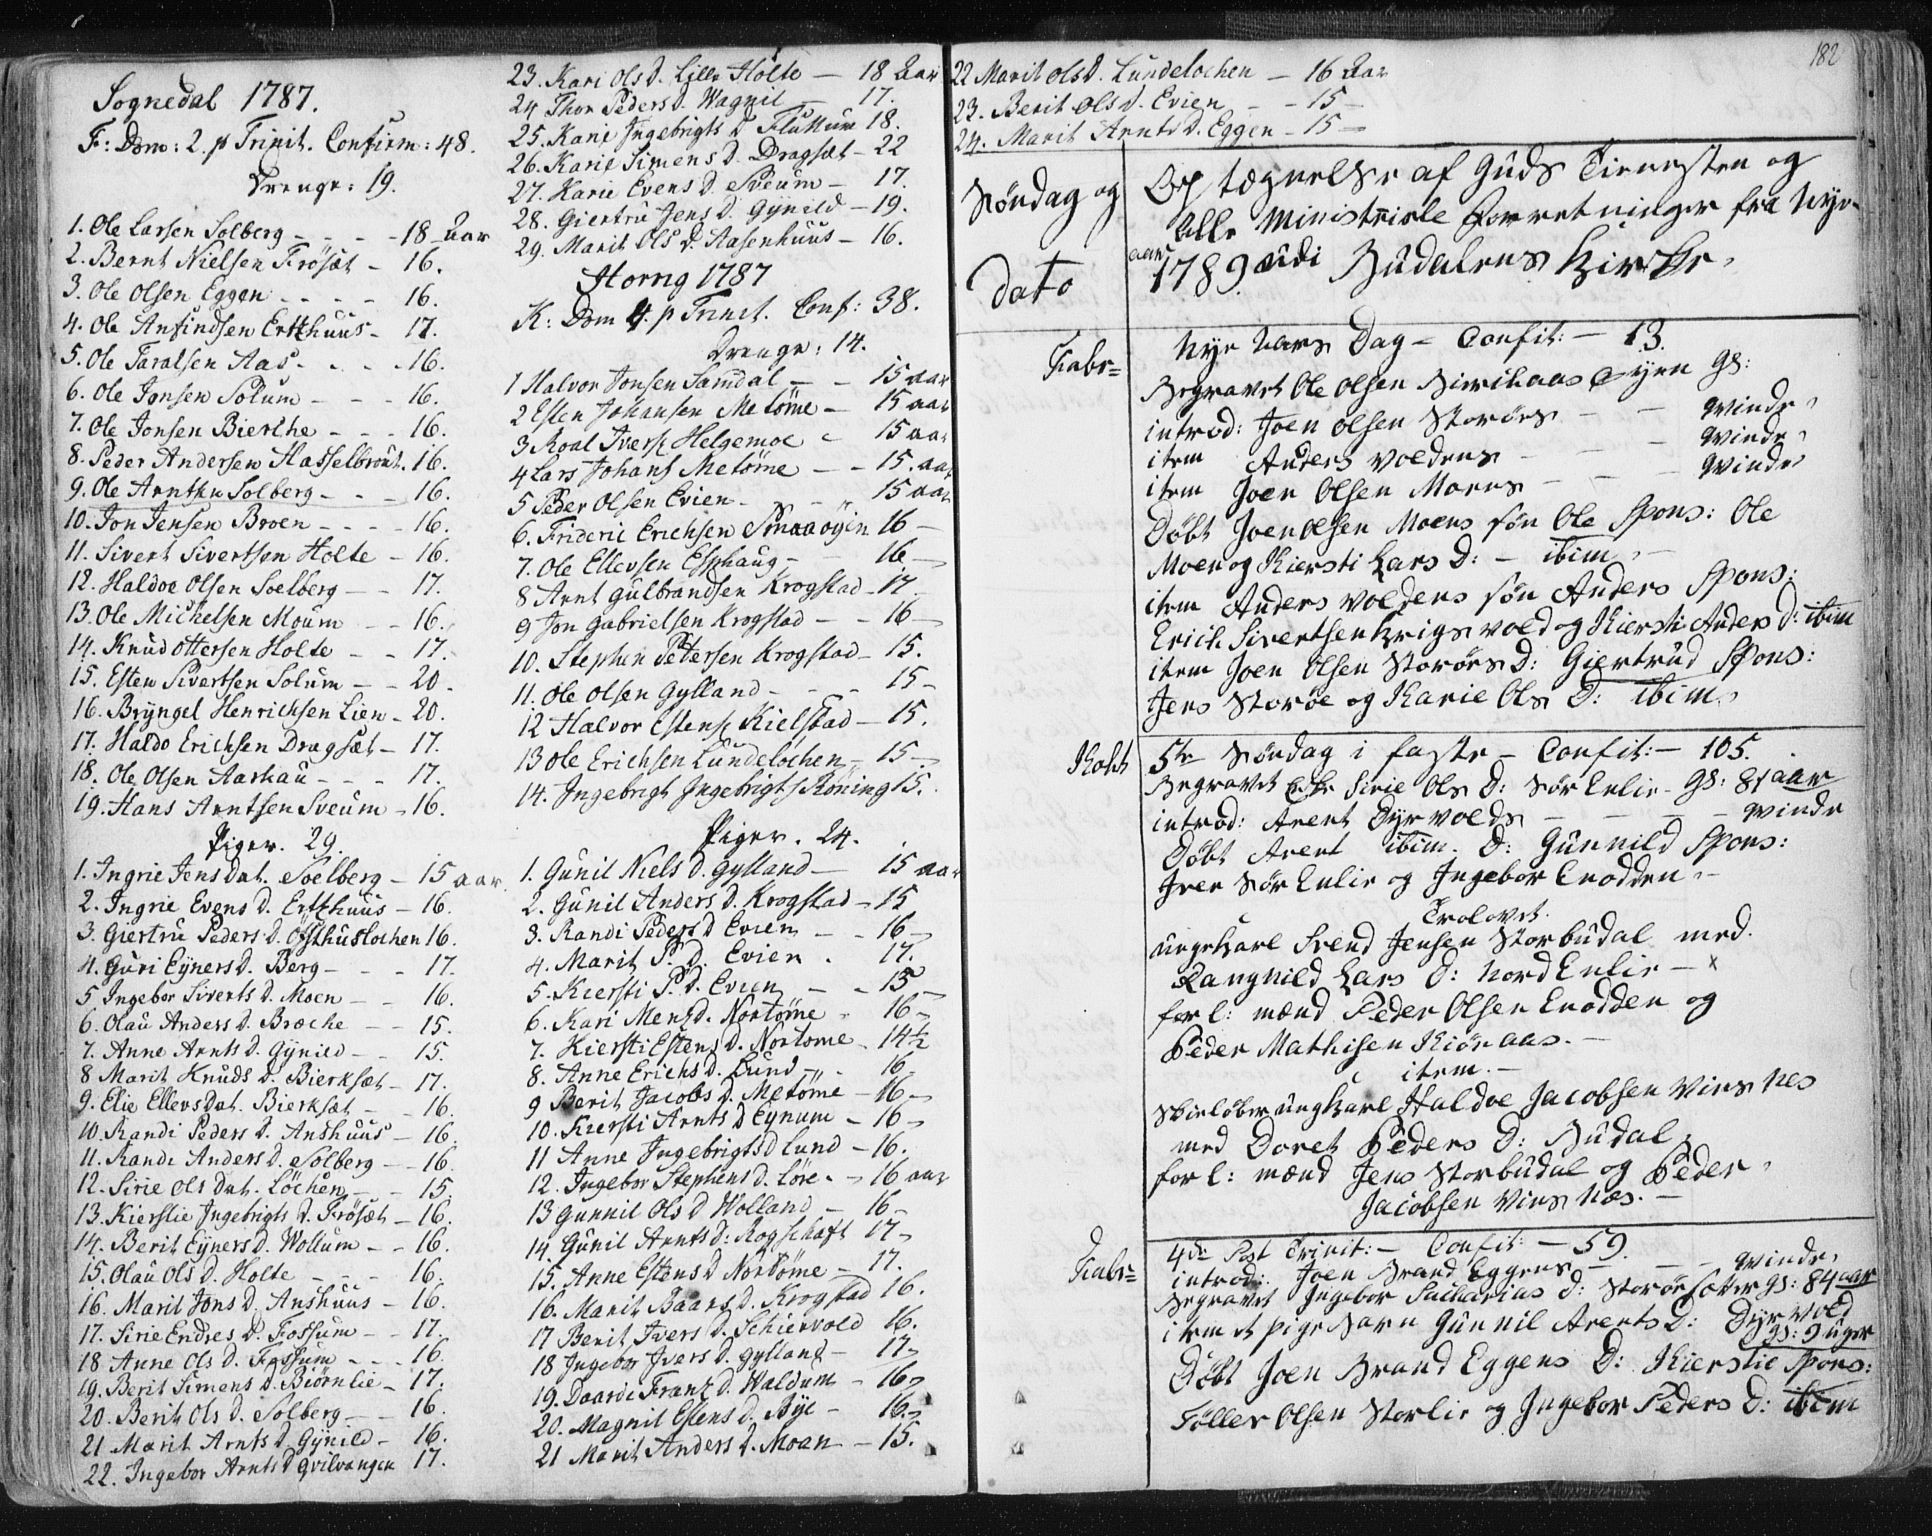 Sognedal 1787.
F: Dom: 2. p Trinit. Confirm: 48.
Drenge: 19.
1. Ole Larsen Solberg - - - - 18 Aar
2. Bernt Nielsen Frösæt - 16.
3. Ole Olsen Eggen - - - - 16.
4. Ole Anfindsen Ertzhuus - 17.
5. Ole Taralsen Aas - - - - 16.
6. Ole Jonsen Solum - - - 16.
7. Ole Jonsen Bierche - - - 16.
8. Peder Andersen Hasselbrout. 16.
9. Ole Arntsen Solberg - - - 16.
10. Jon Jensen Broen - - - - 16.
11. Sivert Sivertsen Holte - 16.
12. Haldoe Olsen Soelberg - - 17.
13. Ole Michelsen Moum - - 16.
14. Knud Ottersen Holte - - 17.
15. Esten Sivertsen Solum - - 20.
16. Bryngel Henrichsen Lien - 20.
17. Haldo Erichsen Dragsæt - 17.
18. Ole Olsen Aashau - - - 17.
19. Hans Arntsen Sveum - 16.
Piger. 29.
1. Ingrie Jens Dat. Soelberg - 15 aar.
2. Ingrie Evens D. Ertzhuus - 16.
3. Giertru Peders D. Østhuslochen 16.
4. Guri Eyners D. Berg - - - 17.
5 Ingebor Siverts D. Moen - - 16.
6. Olau Anders D. Bræche - - 15.
7. Anne Arnts D. Gynild - - 15.
8 Marit Knuds D. Bierksæt - 17.
9. Elie Ellevs Dat. Bierksæt - - 16.
10. Randi Peders D. Anshuus - 16.
11. Randi Anders D. Solberg - - 16.
12. Sirie Ols Dat. Löchen - - 15.
13. Kierstie Ingebrigts D. Frösæt - 16.
14. Berit Eyners D. Wollum - - 16.
15. Olau Ols D. Holte - - - 16.
16. Marit Jons D. Anshuus - 16.
17. Sirie Endres D. Fossum - - 17.
18 Anne Ols D. Fossum - - - 16.
19. Berit Simens D. Biörnlie - 17.
20. Berit Ols D. Solberg - - 16.
21 Marit Arnts D. Gynild - 16.
22. Ingebor Arnts D Qvilvangen 17.
23. Kari Ols D. Lille Holte - 18 Aar
24 Thor Peders D. Wagnil - 17.
25. Karie Ingebrigts D Fluttum 18.
26. Karie Simens D. Dragsæt - 22
27. Karie Evens D. Sveum - 17.
28. Giertru Jens D. Gynild - 19.
29. Marit Ols D. Aasenhuus - 16.
Horng 1787
K: Dom 4. p Trinit. Conf: 38.
Drenge: 14.
1 Halvor Jonsen Samdal - - 15 aar
2 Esten Johansen Metöme - 15 aar
3 Roal Ivers. Helgemoe - 15 aar
4 Lars Johans Metöme - - 15. aar
5 Peder Olsen Evien - - - 15 aar
6. Frideric Erichsen Smaaöyen 16 -
7. Ole Ellevsen Esphaug - - 16 -
8 Arnt Gulbrandsen Krogstad - 17
9 Jon Gabrielsen Krogstad - - 16 -
10. Stephen Petersen Krogstad - 15.
11. Ole Olsen Gylland - - - 15 -
12 Halvor Estens. Kielstad - 15.
13 Ole Erichsen Lundelochen - 15 -
14. Ingebrigt Ingebrigts Röning 15.
Piger. 24.
1. Gunil Niels D. Gylland - 15 aar
2. Gunil Anders D. Krogstad - 15
3. Randi Peders D Evien - - 16 -
4. Marit P. D. Evien . 17.
5. Kiersti P. D. Evien - - 15 -
6. Kari Mens D. Nortöme - 16 -
7. Kiersti Estens D. Nortome - 14½
8. Anne Erichs D. Lund - - 16
9 Berit Jacobs D. Metöme - 16 -
10. Kiersti Arnts D Eynum - 16 -
11 Anne Ingebrigts D Lund - 16.
12. Ingebor Stephens D. Löre. - 16 aar
13 Gunnil Ols D Wolland - 16 -
14. Gunil Arnts D: Rogschaft 17 -
15. Anne Estens D Nortöme - 17.
16. Marit Baars D. Krogstad 16.
17 Berit Ivers D. Schiervold 16.
18 Ingebor Ivers D. Gylland - 17 -
19. Daardi Frants D. Waldum - 16 -
20. Magnil Estens D. Bye - 16 -
21 Marit Anders D. Moan - 15.
182
22 Marit Ols D. Lundelochen - 16 Aar
23. Berit Ols D. Evien - - 15 -
24. Marit Arnts D. Eggen - 15 -
Søndag og
Dato
Optægnelse af Guds Tienesten og
alle Ministerielle Forretninger fra Nye
aar 1789 udi Budalens Kirke.
Fabr=
Nye Aars Dag - Confit: - 13.
Begravet Ole Olsen Birchaas Eyen gs:
introd: Joen Olsen Storøes - - qvinde
item Anders Voldens - - qvinde
item Joen Olsen Moens - - qvinde
Døbt Joen Olsen Moens søn Ole Spons: Ole
Moen og Kiersti Lars D: - ibim -
item Anders Voldens søn Anders Spons:
Erich Sivertsen Krigsvold og Kiersti Anders D: ibim
item Joen Olsen Storøes D: Giertrud Spons:
Jens Storøe og Karie Ols D: ibim.
Koht
5te Søndag i faste - Confit: - 105.
Begravet Enke Sirie Ols D: Sør Enlie - gs: 81 aar
introd: Arent Dyrvolds - - - qvinde
Døbt Arent ibim. D: Gunnild Spons:
Iver Sør Enlie og Ingebor Enodden -
Trolovet.
ungekarl Svend Jensen Storbudal med
Rangnild Lars D: Nord Enlie - x
forl: mænd Peder Olsen Enodden og
Peder Mathisen Kiøraas. -
item. -
Skieløber ungkarl Haldoe Jacobsen Vins Nes
med Doret Peders D: Budal
forl: mænd Jens Storbudal og Peder
Jacobsen Vins Næs. -
Fabr=
4de Post Trinit: - Confit: - 59.
introd: Joen Brand Eggens - - - qvinde
Begravet Ingebor Sacharias D: Storøe sæter gs: 84 aar
item et pigebarn Gunnil Arents D: Dyrvold
gs: 9 uger
Døbt Joen Brand Eggens D: Kierstie Spons:
Føller Olsen Storlie og Ingebor Peders D: ibim